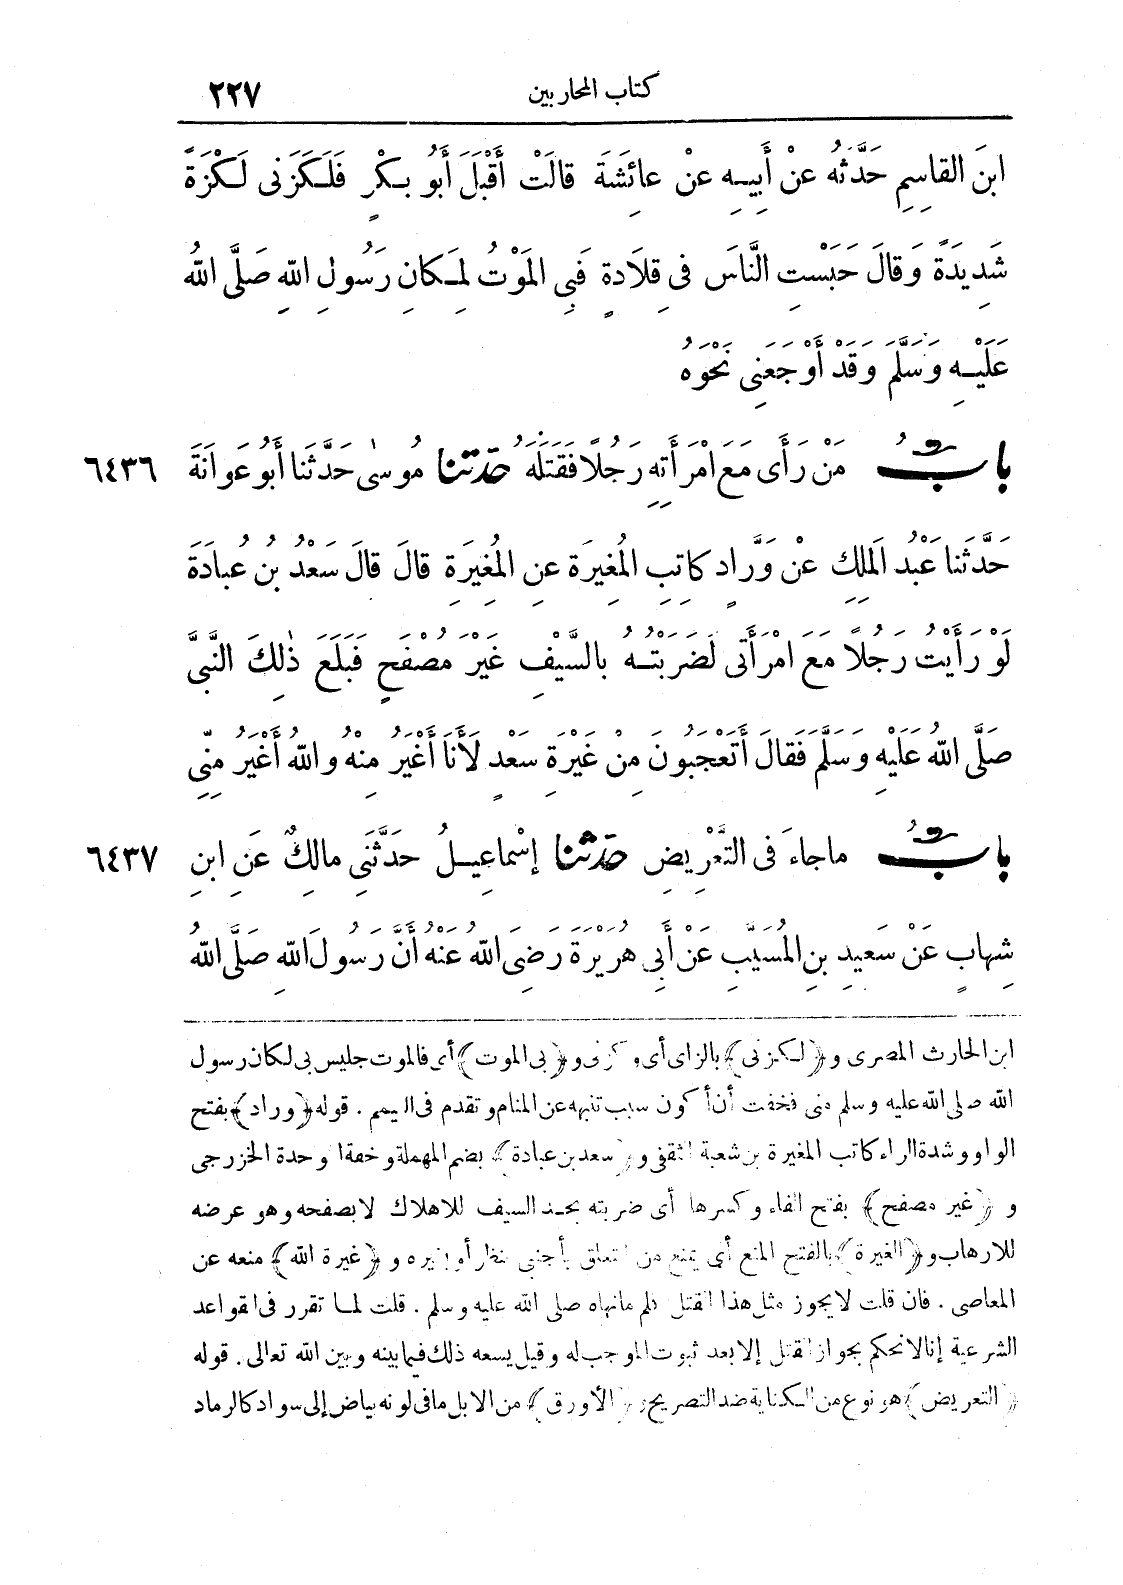 كتاب المحاربين ٢٢٧
ابنَ القاسِمِ حَدَّثَهُ عَنْ أَبِيهِ عَنْ عائِشَةَ قالَتْ أَقْبَلَ أَبُو بَكْرٍ فَلَكَزَنى لَكْزَةً
شَدِيدَةً وَقالَ حَبَسْتِ النَّاسَ فى قِلادَةٍ فَبِى المَوْتُ لِمَكانِ رَسُولِ اللهِ صَلَّى اللهُ
عَلَيْهِ وَسَلَّمَ وَقَدْ أَوْجَعَنِى نَحْوَهُ
بابُ مَنْ رَأَى مَعَ امْرَأَتِهِ رَجُلًا فَقَتَلَهُ حدثنا مُوسٰى حَدَّثَنا أَبُو عَوانَةَ ٦٤٣٦
حَدَّثَنا عَبْدُ المَلِكِ عَنْ وَرَّادٍ كاتِبِ المُغِيرَةِ عَنِ المُغِيرَةِ قالَ قالَ سَعْدُ بنُ عُبادَةَ
لَوْ رَأَيْتُ رَجُلًا مَعَ امْرَأَتى لَضَرَبْتُهُ بالسَّيْفِ غَيْرَ مُصْفَحٍ فَبَلَغَ ذٰلِكَ النَّبىَّ
صَلَّى اللهُ عَلَيْهِ وَسَلَّمَ فَقالَ أَتَعْجَبُونَ مِنْ غَيْرَةِ سَعْدٍ لَأَنَا أَغْيَرُ مِنْهُ واللهُ أَغْيَرُ مِنِّى
بابُ ماجاءَ فى التَّعْرِيضِ حدثنا إسْماعِيلُ حَدَّثَنِى مالِكٌ عَنِ ابنِ ٦٤٣٧
شِهابٍ عَنْ سَعِيدِ بنِ المُسَيَّبِ عَنْ أَبِى هُرَيْرَةَ رَضِىَ اللهُ عَنْهُ أَنَّ رَسُولَ اللهِ صَلَّى اللهُ
ابن الحارث المصرى و﴿لكزنى﴾ بالزاى أى وكزنى و﴿بى الموت﴾ أى فالموت جليس بى لكان رسول
الله صلى الله عليه وسلم منى فخفت أن أكون سبب تنبهه عن المنام وتقدم فى التيمم. قوله ﴿وراد﴾ بفتح
الواو وشدة الراء كاتب المغيرة بن شعبة الثقفى و﴿سعد بن عبادة﴾ بضم المهملة وخفة الموحدة الخزرجى
و ﴿غير مصفح﴾ بفتح الفاء وكسرها أى ضربته بحد السيف للاهلاك لا بصفحه وهو عرضه
للارهاب و﴿الغيرة﴾ بالفتح المنع أى يمنع من التعلق بأجنبى بنظر أو غيره و ﴿غيرة الله﴾ منعه عن
المعاصى. فان قلت لا يجوز مثل هذا القتل فلم مانهاه صلى الله عليه وسلم. قلت لما تقرر فى القواعد
الشرعية إنا لانحكم بجواز القتل إلا بعد ثبوت الموجب له وقيل يسعه ذلك فيما بينه وبين الله تعالى. قوله
﴿التعريض﴾ هو نوع من الكناية ضد التصريح و﴿الأورق﴾ من الابل مافى لونه بياض إلى سواد كالرماد